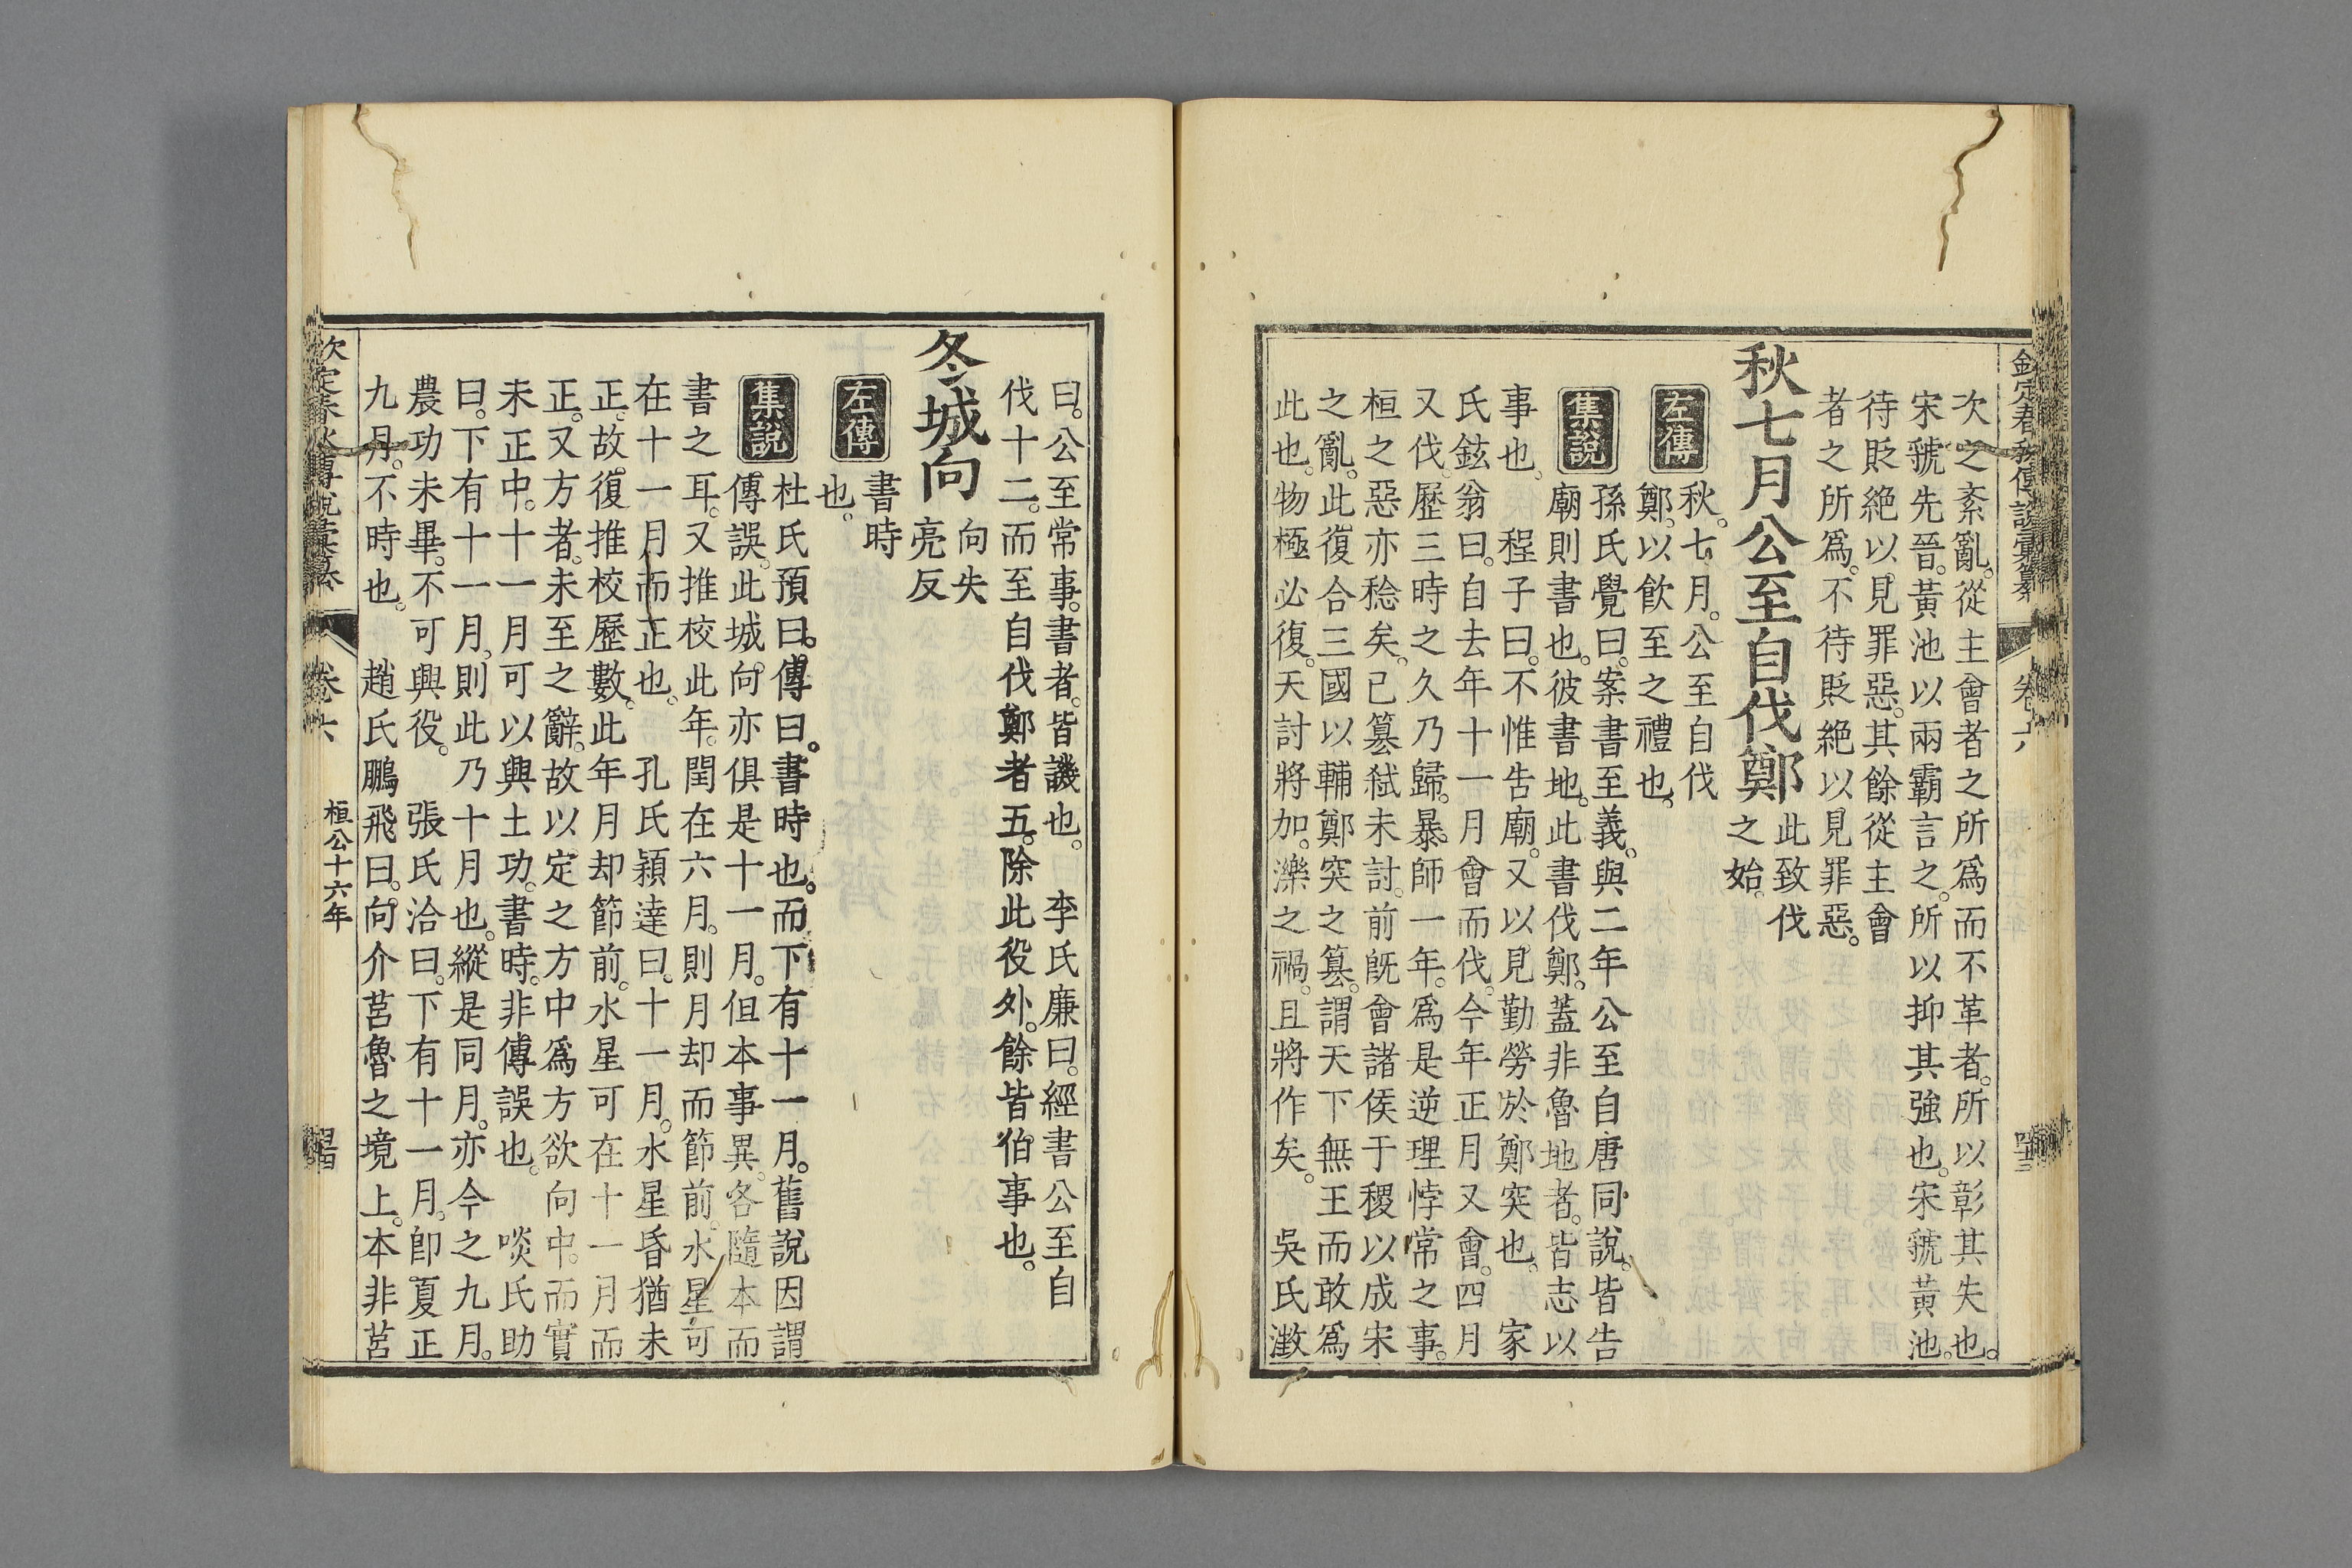 欽定春秋傳說彙纂 卷六
次之紊亂。從主會者之所爲而不革者。所以彰其失也。
宋虢先晉。黃池以兩霸言之。所以抑其強也。宋虢黃池。
待貶絕以見罪惡。其餘從主會
者之所爲。不待貶絕以見罪惡。
秋七月公至自伐鄭
此致伐
之始。
左傳
秋。七月。公至自伐
鄭。以飲至之禮也。
集說
孫氏覺曰。案書至義。與二年公至自唐同說。皆告
廟則書也。彼書地。此書伐鄭。蓋非魯地者。皆志以
事也。 程子曰。不惟告廟。又以見勤勞於鄭突也。 家
氏鉉翁曰。自去年十一月會而伐。今年正月又會。四月
又伐。歷三時之久乃歸。暴師一年。爲是逆理悖常之事。
桓之惡亦稔矣。已篡弒未討。前旣會諸侯于稷以成宋
之亂。此復合三國以輔鄭突之篡。謂天下無王而敢爲
此也。物極必復。天討將加。濼之禍。且將作矣。 吳氏澂
曰。公至常事。書者。皆譏也。 李氏廉曰。經書公至自
伐十二。而至自伐鄭者五。除此役外。餘皆伯事也。
冬城向
向失
亮反
左傳
書時
也。
集說
杜氏預曰。傳曰。書時也。而下有十一月。舊說因謂
傳誤。此城向亦俱是十一月。但本事異。各隨本而
書之耳。又推校此年。閏在六月。則月却而節前。水星可
在十一月而正也。 孔氏穎達曰。十一月。水星昏猶未
正。故復推校歷數。此年月却節前。水星可在十一月而
正。又方者。未至之辭。故以定之方中爲方欲向中。而實
未正中。十一月可以興土功。書時。非傳誤也。 啖氏助
曰。下有十一月。則此乃十月也。縱是同月。亦今之九月。
農功未畢。不可興役。 張氏洽曰。下有十一月。卽夏正
九月。不時也。 趙氏鵬飛曰。向介莒魯之境上。本非莒
卷六 桓公十六年